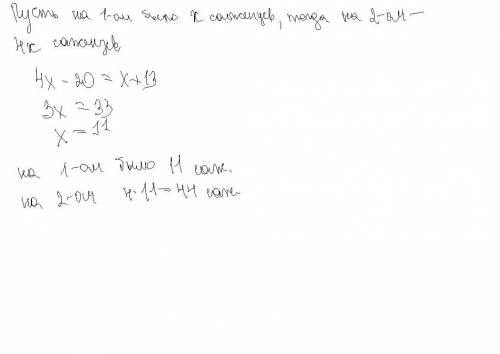 Пусть на 1-ом было x саженцев, тогда на 2-ом –
4x саженцев
4x - 20 = x + 13
3x = 33
x = 11
на 1-ом было 11 саж.
на 2-ом 4·11=44 саж.